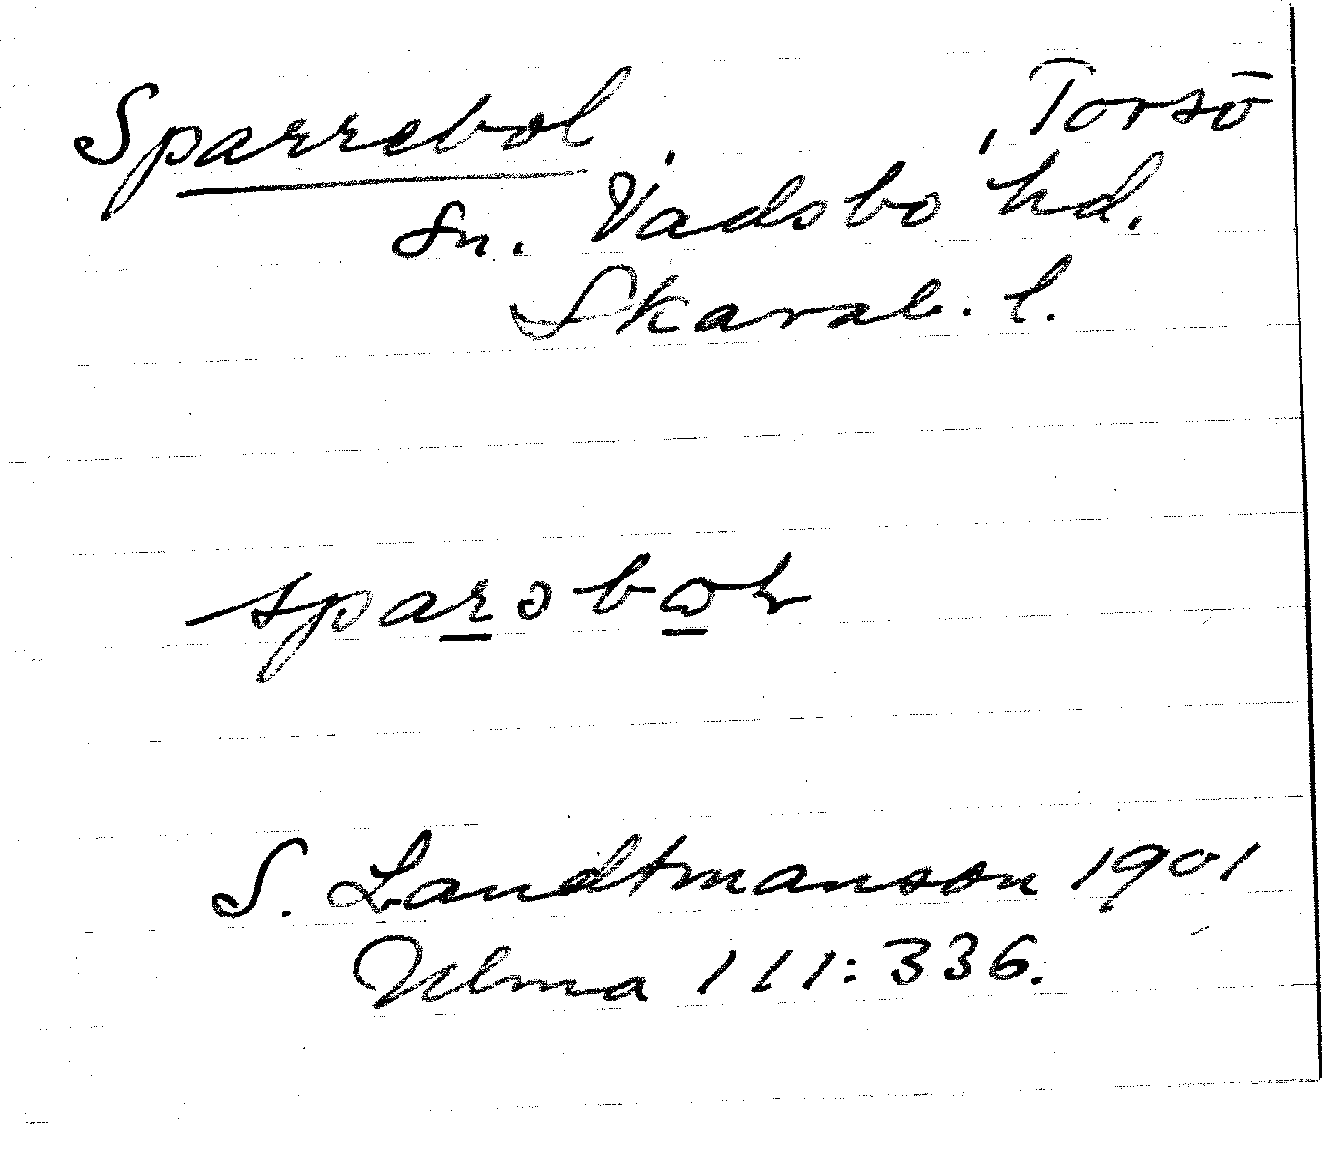 Sparrebol, , Torsö
Sn. Vadsbo hd.
Skarab. l.
S. Landtmanson 1901
Ulma 111:336.